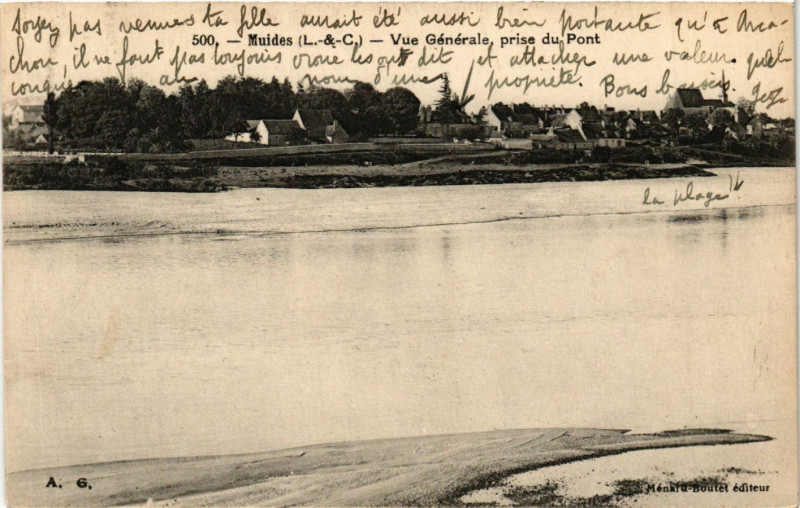 pas venues ta fille aurait été aussi bien portante qu'à Arca-
500. — Muides (L.-&-C.) — Vue Générale, prise du Pont
chon, il ne faut pas toujours croire les dit et attacher une valeur quel-
conque au nom d'une propriété. Bons baisers.
la plage
A. G.
Ménard-Boutet éditeur